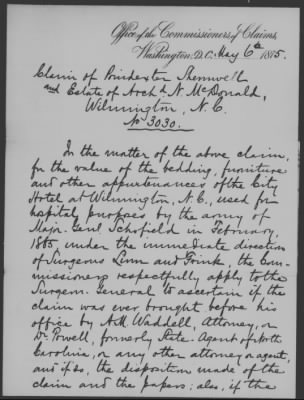 Office of the Commissioners of Claims,
Washington, D.C. May 6th 1875.
Claim of Poindexter
and Estate of Archd N. McDonald,
Wilmington, N.C.
No 3030.
In the matter of the above claim,
for the value of the bedding, furniture
and other appurtenances of the City
Hotel at Wilmington, N.C., used for
hospital purposes by the army of
Major. Genl Schofield in February,
1865, under the immediate direction
of Surgeons and the Com-
missioners respectfully apply to the
Surgeon General to ascertain if the
claim was ever brought before his
office by A.M. Waddell, Attorney, or
Dr Powell, formerly State Agent of North
Carolina, or any other attorney or agent,
and if so, the disposition made of the
claim and the papers; also, if the